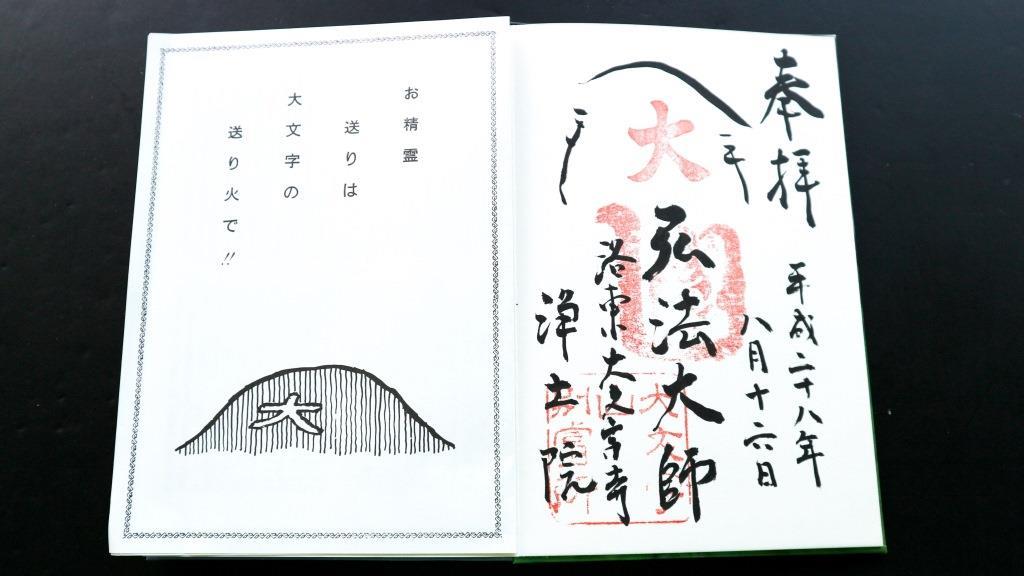 奉拝
平成二十八年
八月十六日
大
弘法大師
洛東大文字寺
浄土院
お精霊
送りは
大文字の
送り火で!!
大